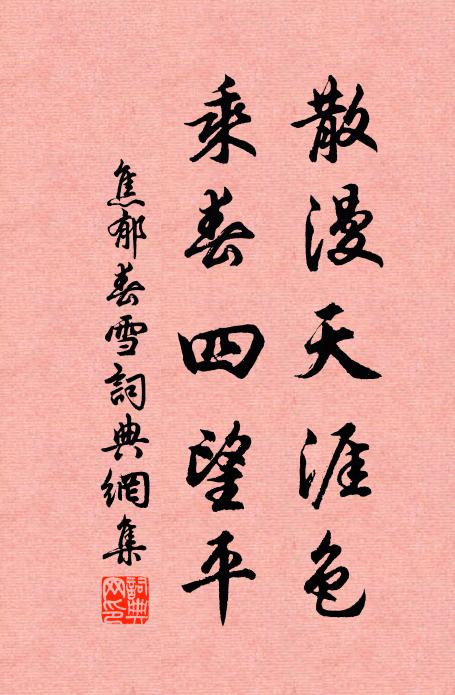 散漫天涯色
乘春四望平
焦郁春雪詞典網集
詞典網印